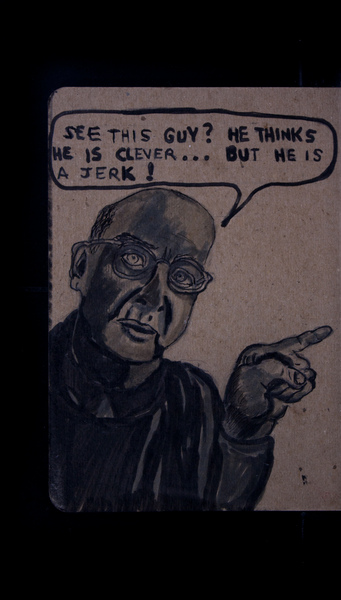 SEE THIS GUY? HE THINKS
HE IS CLEVER... BUT HE IS
A JERK!